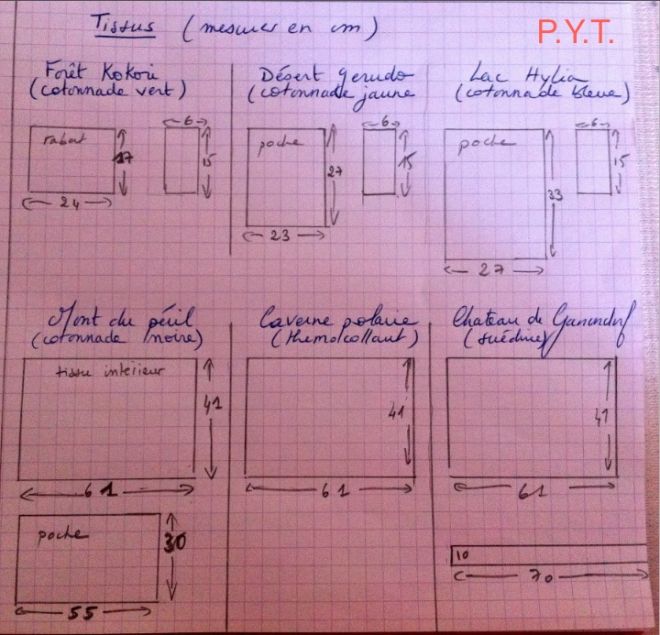 Tissus (mesures en cm)
P.Y.T.
Forêt Kokori
(cotonnade vert)
Désert gerudo
(cotonnade jaune
Lac Hylia
(cotonnade bleue)
rabat
17
24
6
15
poche
27
23
6
15
poche
33
27
6
15
Mont du péril
(cotonnade noire)
Caverne polaire
(thermocollant)
Chateau de Ganondorf
(suédine)
tissu intérieur
41
61
41
61
41
61
poche
30
55
10
70